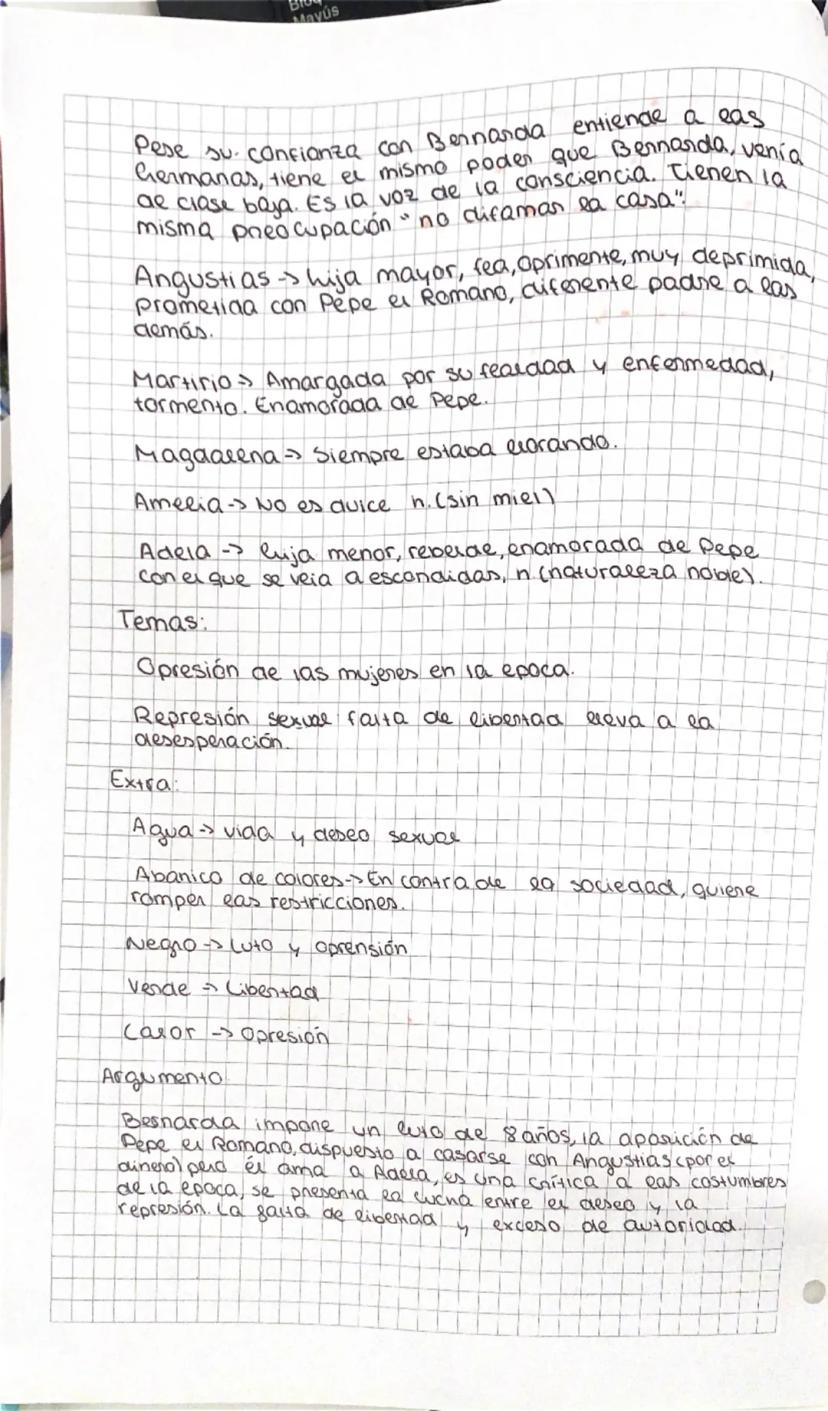 Bloq
Mayús
Pese su confianza con Bernarda entiende a las
hermanas, tiene el mismo poder que Bernarda, venía
de clase baja. Es la voz de la consciencia. Tienen la
misma preocupación "no difamar la casa".
Angustias -> hija mayor, fea, oprimente, muy deprimida,
prometida con Pepe el Romano, diferente padre a las
demás.
Martirio => Amargada por su fealdad y enfermedad,
tormento. Enamorada de Pepe.
Magdalena => Siempre estaba llorando.
Amelia -> No es dulce n. (sin miel)
Adela -> hija menor, rebelde, enamorada de Pepe
con el que se veia a escondidas, n (naturaleza noble).
Temas:
Opresión de las mujeres en la epoca.
Represión sexual falta de libertad lleva a la
desesperación.
Extra:
Agua -> vida y deseo sexual
Abanico de colores -> En contra de la sociedad, quiere
romper las restricciones.
Negro -> Luto y oprensión
Verde => Libertad
Calor -> Opresión
Argumento
Bernarda impone un luto de 8 años, la aparición de
Pepe el Romano, dispuesto a casarse con Angustias (por el
dinero) pero él ama a Adela, es una crítica a las costumbres
de la epoca, se presenta la lucha entre el deseo y la
represión. La falta de libertad y exceso de autoridad.